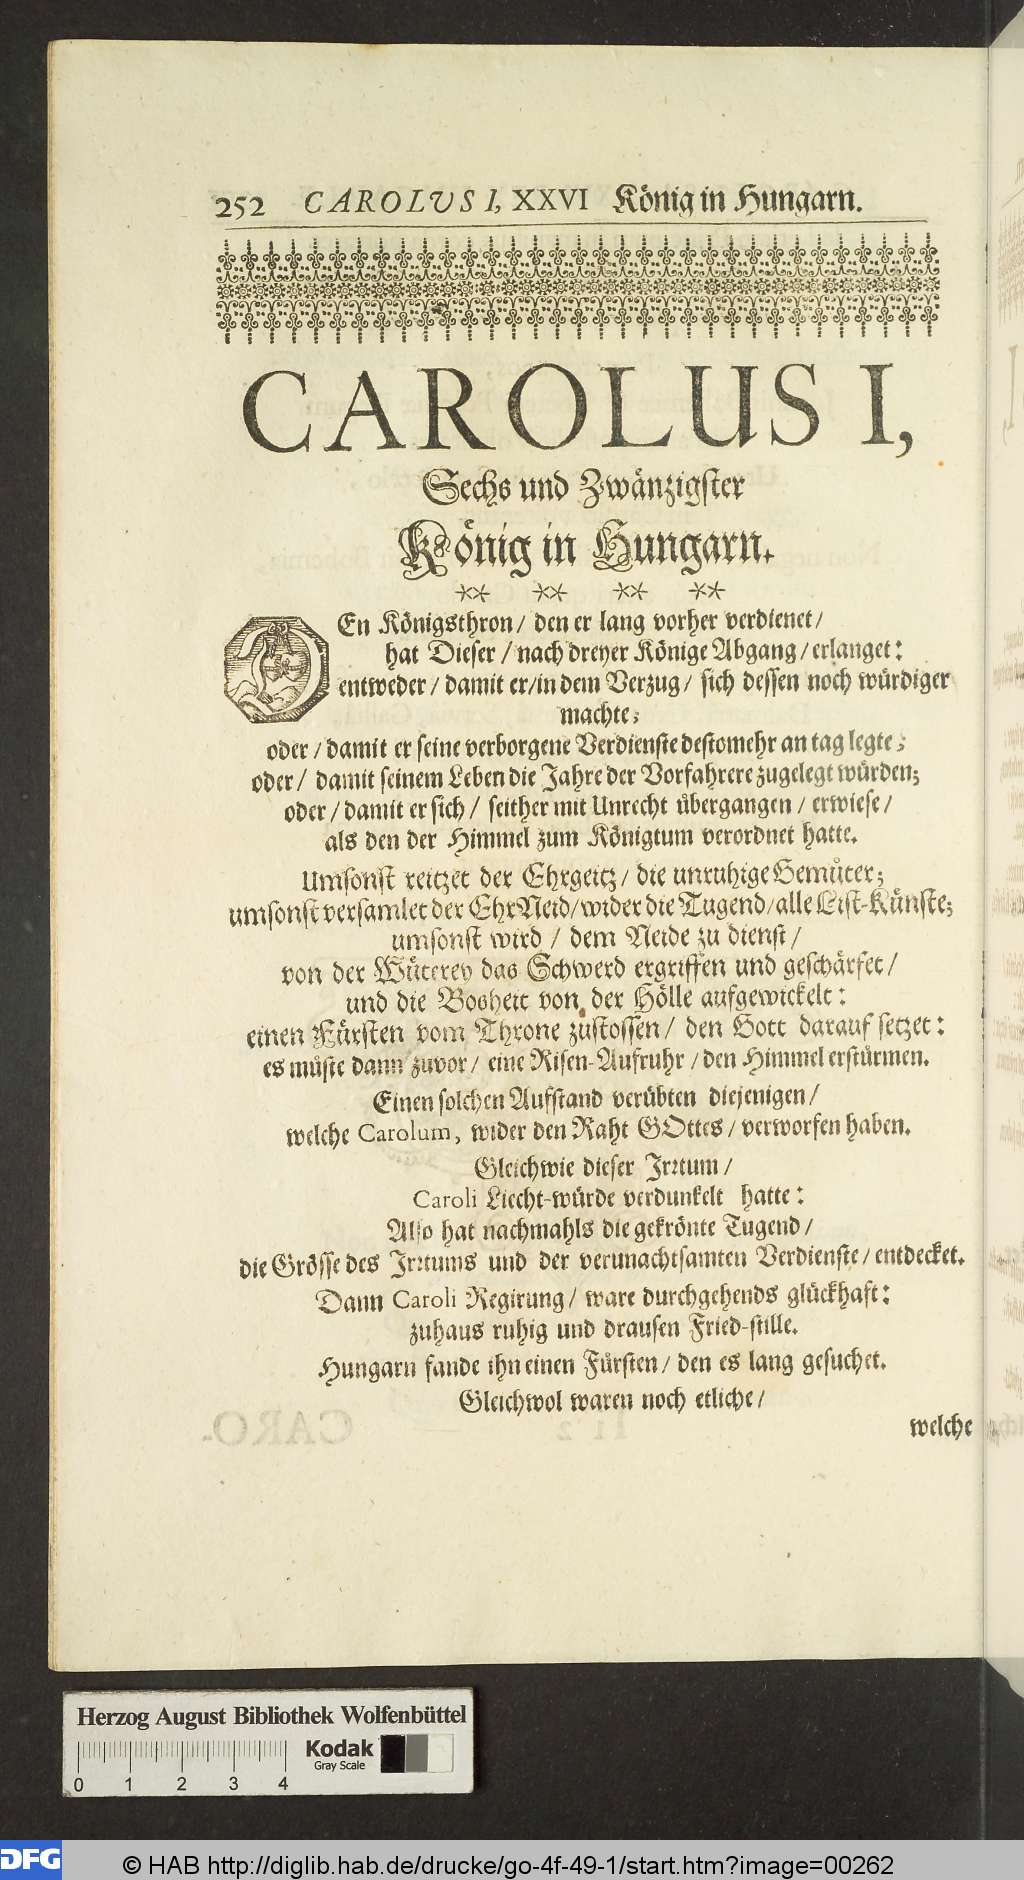 252 CAROLVS I, XXVI König in Hungarn.
CAROLUS I,
Sechs und Zwänzigster
König in Hungarn.
** ** ** **
DEn Königsthron / den er lang vorher verdienet /
hat Dieser / nach dreyer Könige Abgang / erlanget:
entweder / damit er / in dem Verzug / sich dessen noch würdiger
machte;
oder / damit er seine verborgene Verdienste destomehr an tag legte;
oder / damit seinem Leben die Jahre der Vorfahrere zugelegt würden;
oder / damit er sich / seither mit Unrecht übergangen / erwiese /
als den der Himmel zum Königtum verordnet hatte.
Umsonst reitzet der Ehrgeitz / die unruhige Gemüter;
umsonst versamlet der EhrNeid / wider die Tugend / alle List-Künste;
umsonst wird / dem Neide zu dienst /
von der Wüterey das Schwerd ergriffen und geschärfet /
und die Bosheit von der Hölle aufgewickelt:
einen Fürsten vom Throne zustossen / den Gott darauf setzet:
es müste dann zuvor / eine Risen-Aufruhr / den Himmel erstürmen.
Einen solchen Aufstand verübten diejenigen /
welche Carolum, wider den Raht GOttes / verworfen haben.
Gleichwie dieser Irrtum /
Caroli Liecht-würde verdunkelt hatte:
Also hat nachmahls die gekrönte Tugend /
die Grösse des Irrtums und der verunachtsamten Verdienste / entdecket.
Dann Caroli Regirung / ware durchgehends glückhaft:
zuhaus ruhig und drausen Fried-stille.
Hungarn fande ihn einen Fürsten / den es lang gesuchet.
Gleichwol waren noch etliche /
welche
Herzog August Bibliothek Wolfenbüttel
Kodak
Gray Scale
0 1 2 3 4
DFG
© HAB http://diglib.hab.de/drucke/go-4f-49-1/start.htm?image=00262